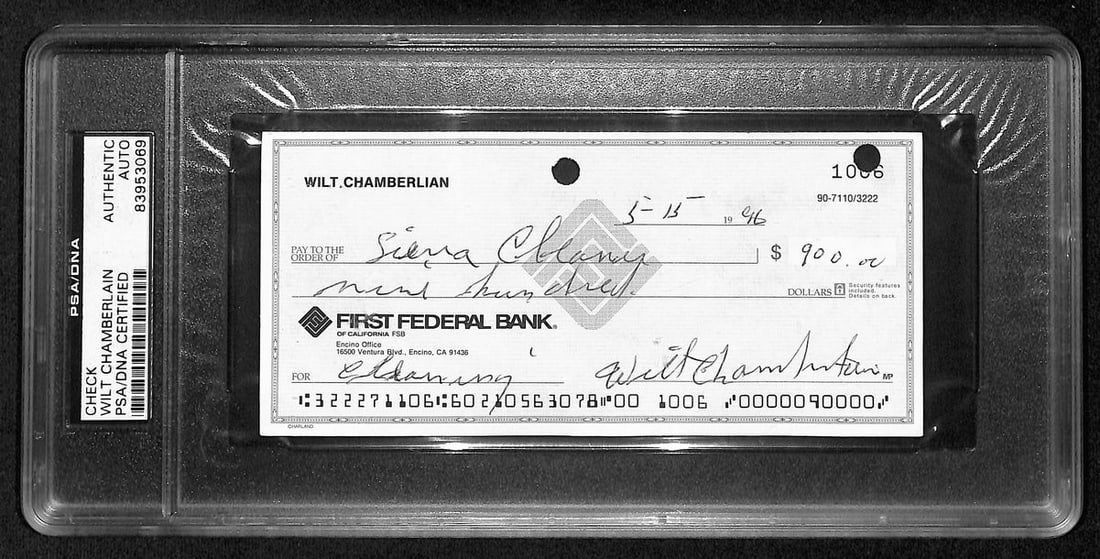 PSA/DNA
CHECK
WILT CHAMBERLAIN
PSA/DNA CERTIFIED
AUTHENTIC
AUTO
83953069
WILT.CHAMBERLIAN
1006
90-7110/3222
5-15 19 96
PAY TO THE
ORDER OF Sierra $ 900.00
nine hundred DOLLARS Security features
included.
Details on back.
FIRST FEDERAL BANK®
OF CALIFORNIA FSB
Encino Office
16500 Ventura Blvd., Encino, CA 91436
FOR Cleaning Wilt Chamberlain MP
⑆322271106⑆60210563078⑈00 1006 ⑈0000090000⑈
©HARLAND